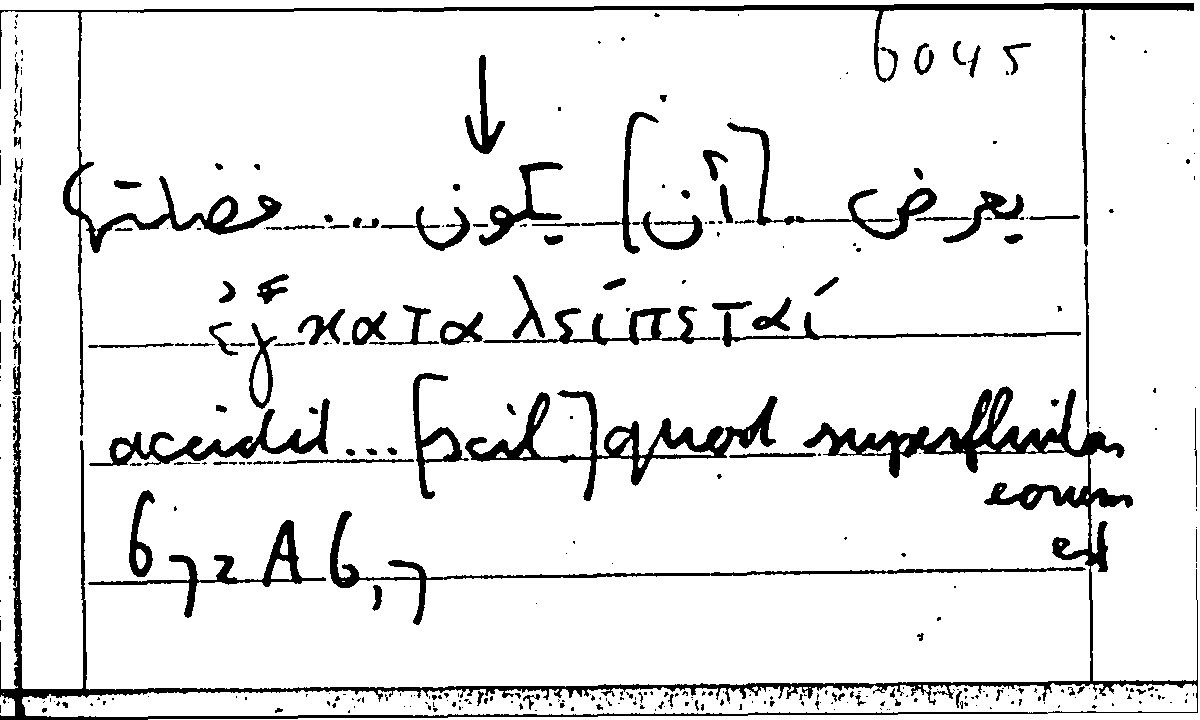 6045
↓
يعرض ... [أن] يكون ... فضلتها
ἐξ καταλείπεταί
accidit ... [scil.] quod superfluitas
eorum
est
672 A 6,7